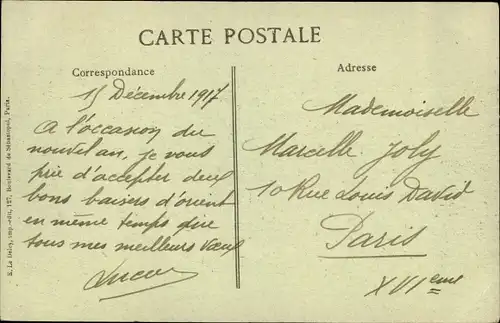 CARTE POSTALE
Correspondance
15 Décembre 1917
A l'occasion du
nouvel an, je vous
prie d'accepter deux
bons baisers d'orient
en même temps que
tous mes meilleurs vœux
Adresse
Mademoiselle
Marcelle Joly
10 Rue Louis David
Paris
XVIeme
E. Le Deley, imp.-édit., 127, boulevard de Sébastopol, Paris.